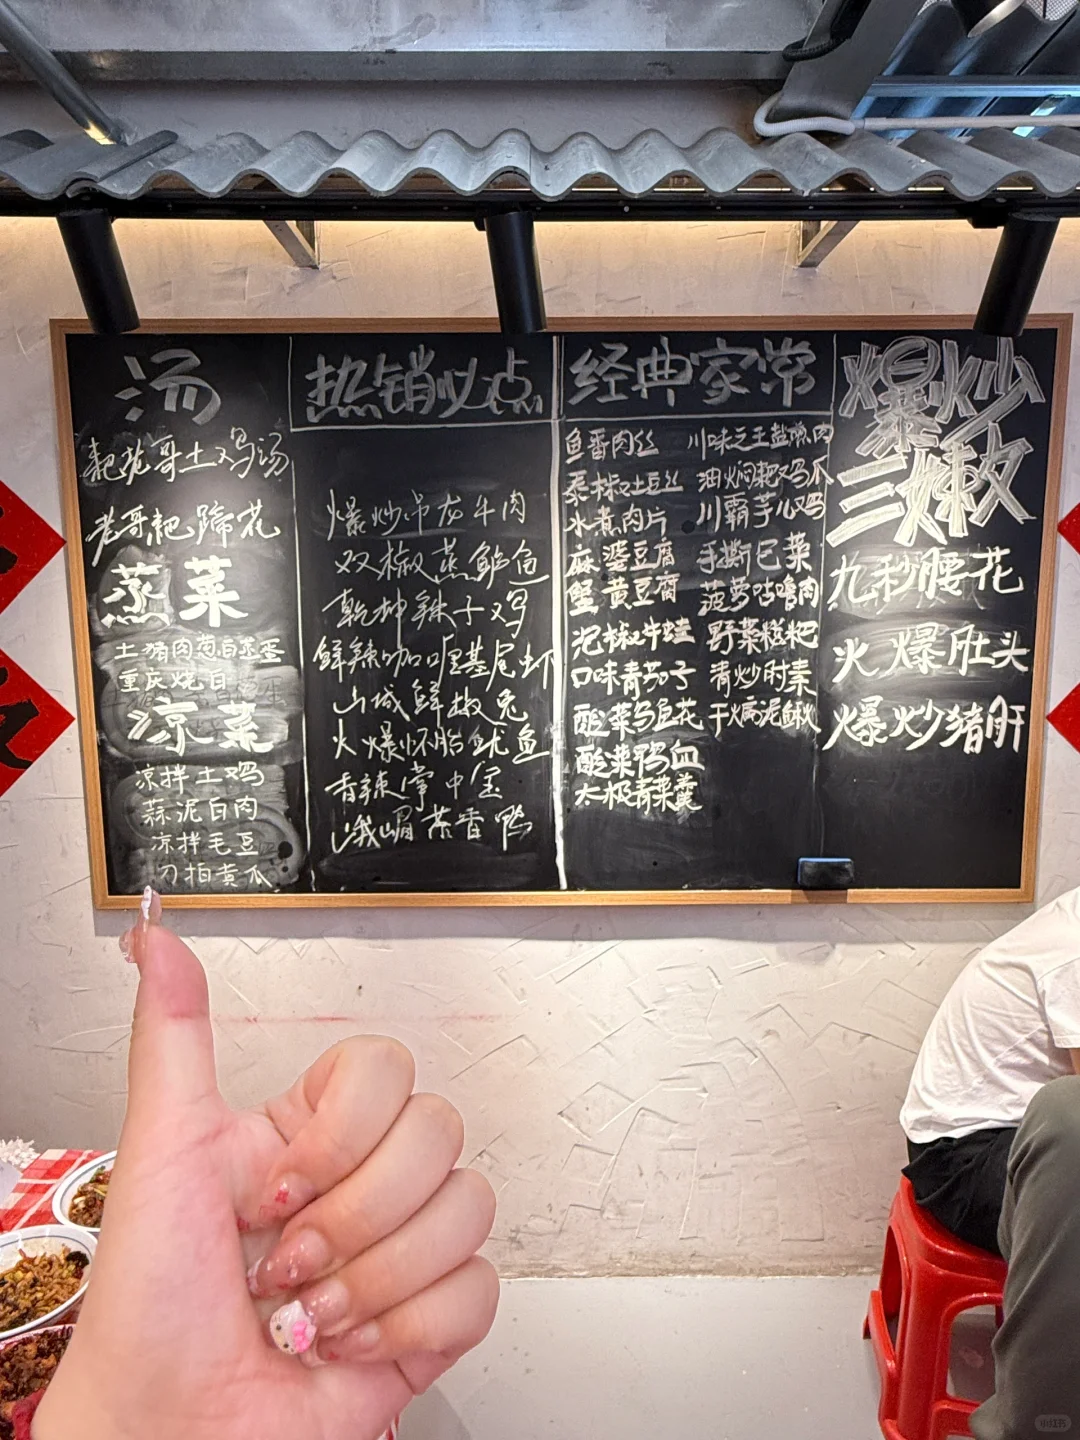 汤
耙老哥土鸡汤
老哥耙蹄花
蒸菜
土猪肉葱白蒸蛋
重庆烧白
凉菜
凉拌土鸡
蒜泥白肉
凉拌毛豆
刀拍黄瓜
热销必点
爆炒吊龙牛肉
双椒蒸鲈鱼
乾坤辣子鸡
鲜辣咖喱基尾虾
山城鲜椒兔
火爆怀胎鱿鱼
香辣掌中宝
峨嵋茶香鸭
经典家常
鱼香肉丝
椒土豆丝
水煮肉片
麻婆豆腐
蟹黄豆腐
泡椒牛蛙
口味青茄子
酸菜乌鱼花
酸菜鸭血
太极青菜羹
川味之王盐煎肉
油焖耙鸡爪
川霸芋儿鸡
手撕巴菜
菠萝咕噜肉
野菜糍粑
清炒时素
干煸泥鳅
爆炒
三嫩
九秒腰花
火爆肚头
爆炒猪肝
小红书